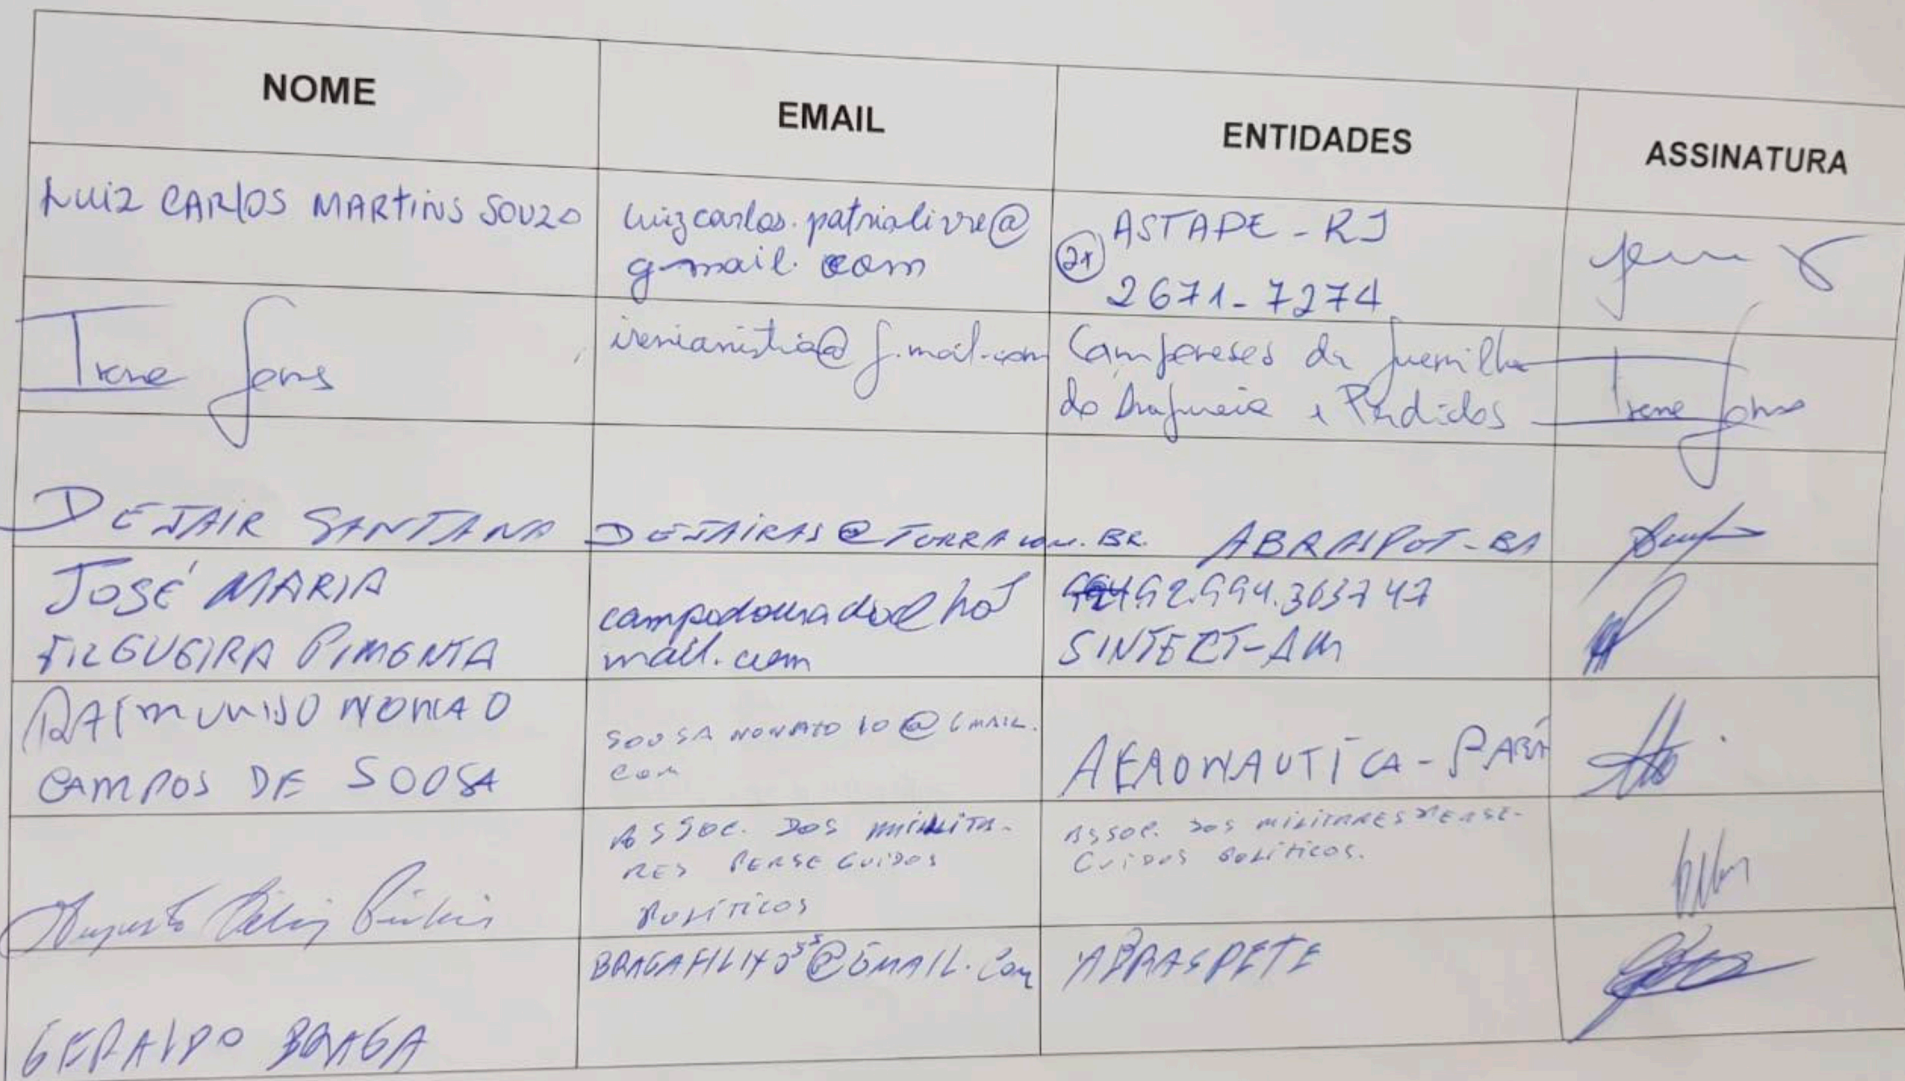 NOME
EMAIL
ENTIDADES
ASSINATURA
LUIZ CARLOS MARTINS SOUZA
luizcarlos.patrialivre@
gmail.com
ASTAPE-RJ
21
2671-7274
Irene Gomes
irenianistia@g.mail.com
Camponeses da Guerrilha
do Araguaia e Perdidos
Irene Gomes
DEJAIR SANTANA
DEJAIRAS@TERRA.COM.BR.
ABRASPOT-BA
JOSÉ MARIA
FILGUEIRA PIMENTA
campodourado@hot
mail.com
92.994.363747
SINTECT-AM
RAIMUNDO NONATO
CAMPOS DE SOUSA
SOUSA NONATO 10@GMAIL.
COM
AERONAUTICA-PARÁ
Augusto
ASSOC. DOS MILITA-
RES PERSEGUIDOS
POLÍTICOS
ASSOC. DOS MILITARES PERSE-
GUIDOS POLÍTICOS.
GERALDO BRAGA
BRAGAFILHO55@GMAIL.COM
ABRASPETE